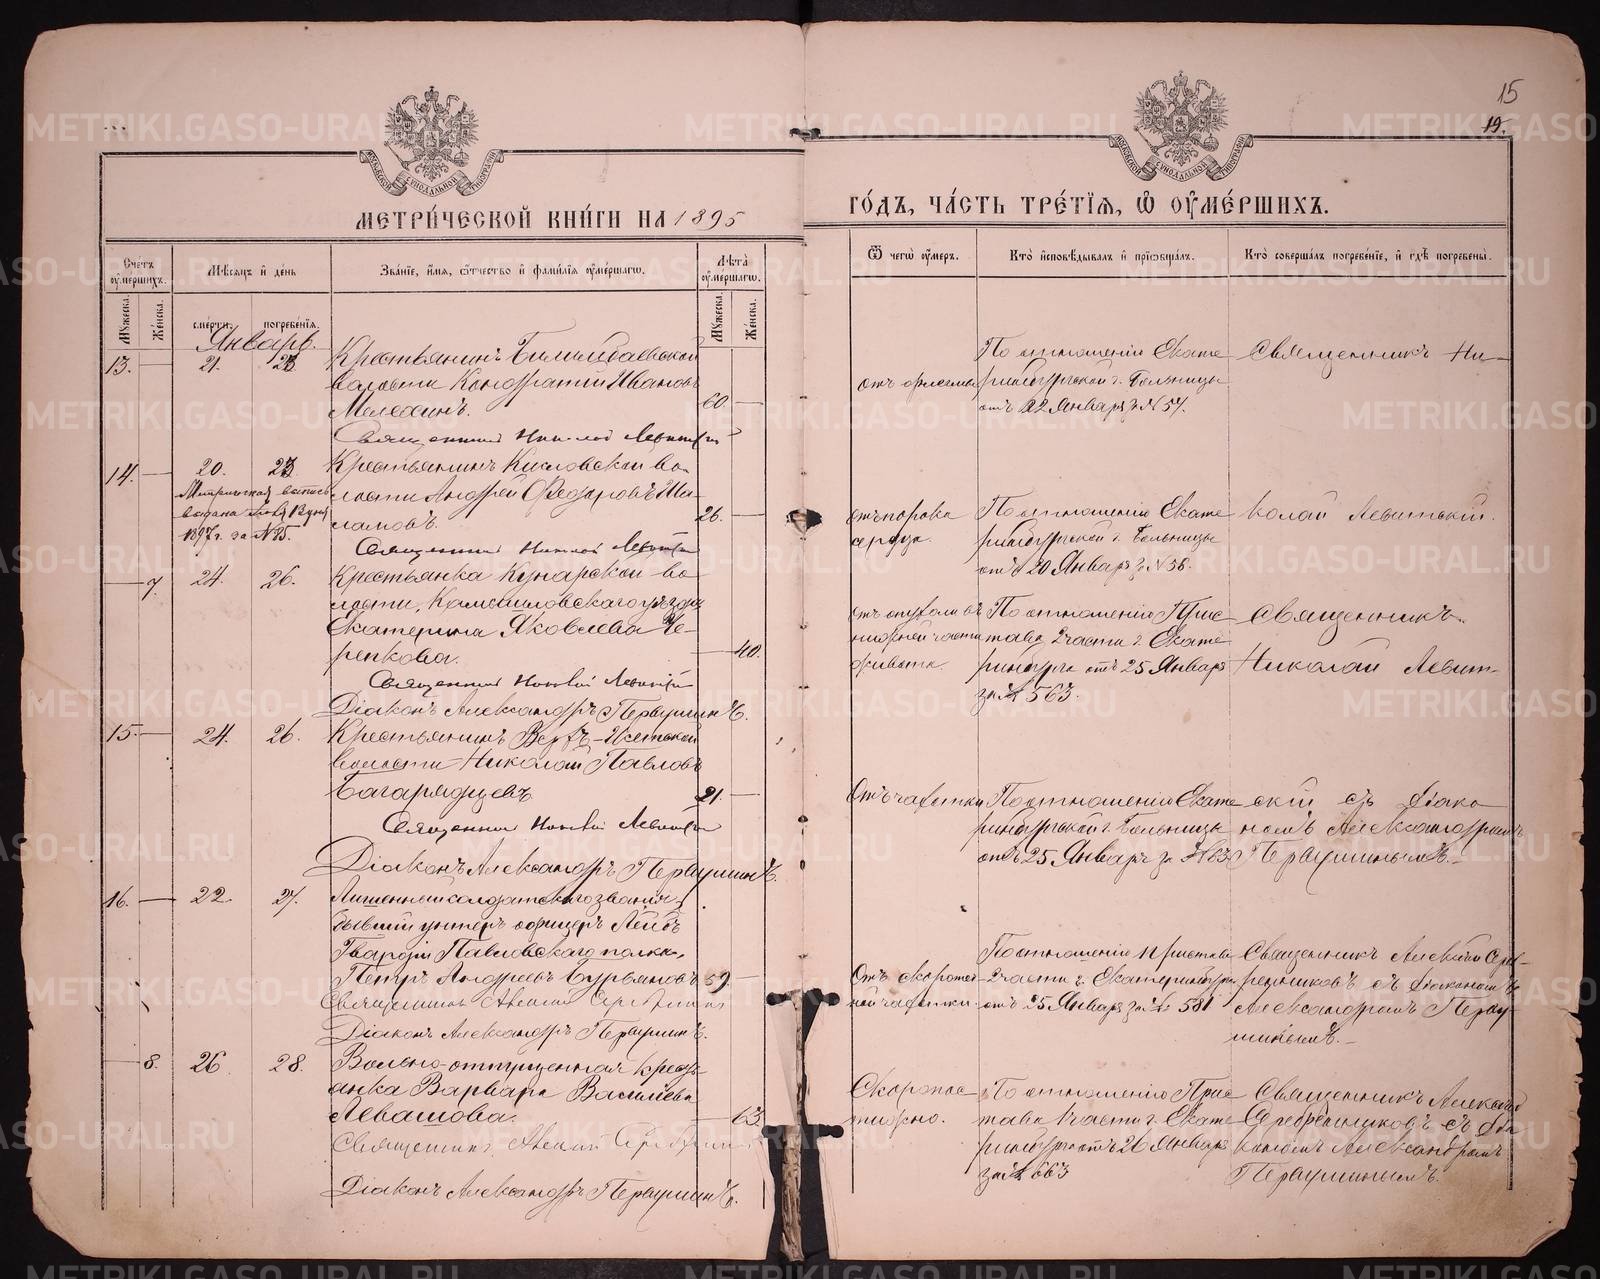 15
19.
МЕТРИ́ЧЕСКОЙ КНИ́ГИ НА 1895
ГО́ДЪ, ЧА́СТЬ ТРЕ́ТІѦ, Ѡ҆ ОУ҆МЕ́РШИХЪ.
Сче́тъ оу҆ме́ршихъ.
Мѣ́сѧцъ и҆ де́нь
Зва́нїе, и҆́мѧ, ѻ҆́тчество и҆ фами́лїѧ оу҆ме́ршагѡ.
Лѣ́та оу҆ме́ршагѡ.
Ѿ чегѡ̀ оу҆́меръ.
Кто̀ и҆сповѣ́дывалъ и҆ прїѡбща́лъ.
Кто̀ соверша́лъ погребе́нїе, и҆ гдѣ̀ погребены̀.
Мꙋ́жеска.
Же́нска.
сме́рти.
погребе́нїѧ.
Мꙋ́жеска.
Же́нска.
Январь.
13. 21. 23
Крестьянинъ Билимбаевской
волости Кондратій Ивановъ
60.
Священникъ Николай Левитскій
отъ
По отношенію Екате
ринбургской г. Больницы
отъ 22 Января за № 54.
Священникъ Ни-
14. 20. 23
Метрическая выпись
выдана
1897 г. за № 85.
Крестьянинъ Кисловской во-
лости Андрей Ѳедоровъ Ша-
ламовъ.
26.
Священникъ Николай Левитскій
отъ порока
сердца.
По отношенію Екате
ринбургской г. Больницы
отъ 20 Января за № 58.
колай Левитскій.
7. 24. 26.
Крестьянка Кунарской во-
лости, Камышловскаго уѣзда
Екатерина Яковлева Че-
репкова.
40.
Священникъ Николай Левитскій
Діаконъ Александръ Первушинъ.
отъ опухоли въ
части
живота.
По отношенію Прис
тава 2 части г. Екате
ринбурга отъ 25 Января
за № 563.
Священникъ
Николай Левит-
15. 24. 26.
Крестьянинъ Верхъ-Исетской
волости Николай Павловъ
Багарядцевъ
21.
Священникъ Николай Левитскій
Діаконъ Александръ Первушинъ.
Отъ чахотки
По отношенію Екате
ринбургской г. Больницы
отъ 25 Января за № 63
скій съ діако
номъ Александромъ
Первушинымъ.
16. 22. 27.
Лишенный солдатскаго званія,
бывшій унтеръ офицеръ Лейбъ
Гвардіи Павловскаго полка,
Петръ Андреевъ Бурьяновъ
59.
Священникъ Алексій Серебренниковъ
Діаконъ Александръ Первушинъ.
Отъ скоротеч
ной чахотки.
По отношенію пристава
2 части г. Екатеринбурга
отъ 25 Января за № 581
Священникъ Алексій Сереб-
ренниковъ съ діакономъ
Александромъ Перву-
шинымъ.
8. 26 28.
Вольно-отпущенная кресть-
янка Варвара Васильева
Левашова.
63.
Священникъ Алексій Серебренниковъ
Діаконъ Александръ Первушинъ.
Скоропос
тижно.
По отношенію Прис
тава 1 части г. Екате
ринбурга отъ 26 Января
за № 663
Священникъ Алексій
Серебренниковъ съ діа
кономъ Александромъ
Первушинымъ.
METRIKI.GASO-URAL.RU